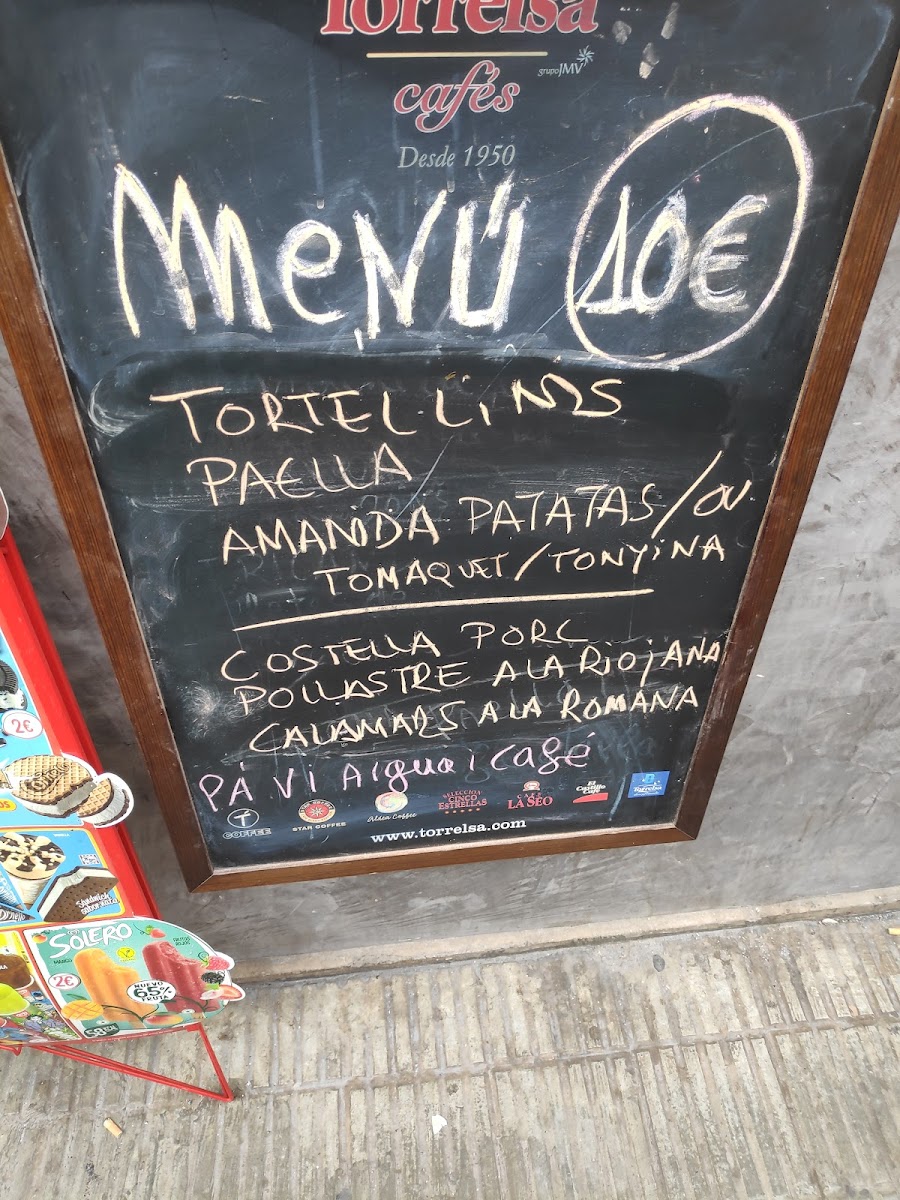 Torrelsa
cafés
grupoJMV
Desde 1950
MeNÚ 10€
TORTEL·LINIS
PAELLA
AMANIDA PATATAS/OU
TOMAQUET/TONYINA
COSTELLA PORC
POLLASTRE A LA RIOJANA
CALAMARS A LA ROMANA
PÁ VI AIGUA i CAFÉ
COFFEE
STAR COFFEE
Alden Coffee
SELECCIÓN CINCO ESTRELLAS
CAFÉ LA SEO
El Castillo Café
Torrelsa
www.torrelsa.com
2€
Sandwich
SOLERO
2€
NUEVO
65%
FRUTA